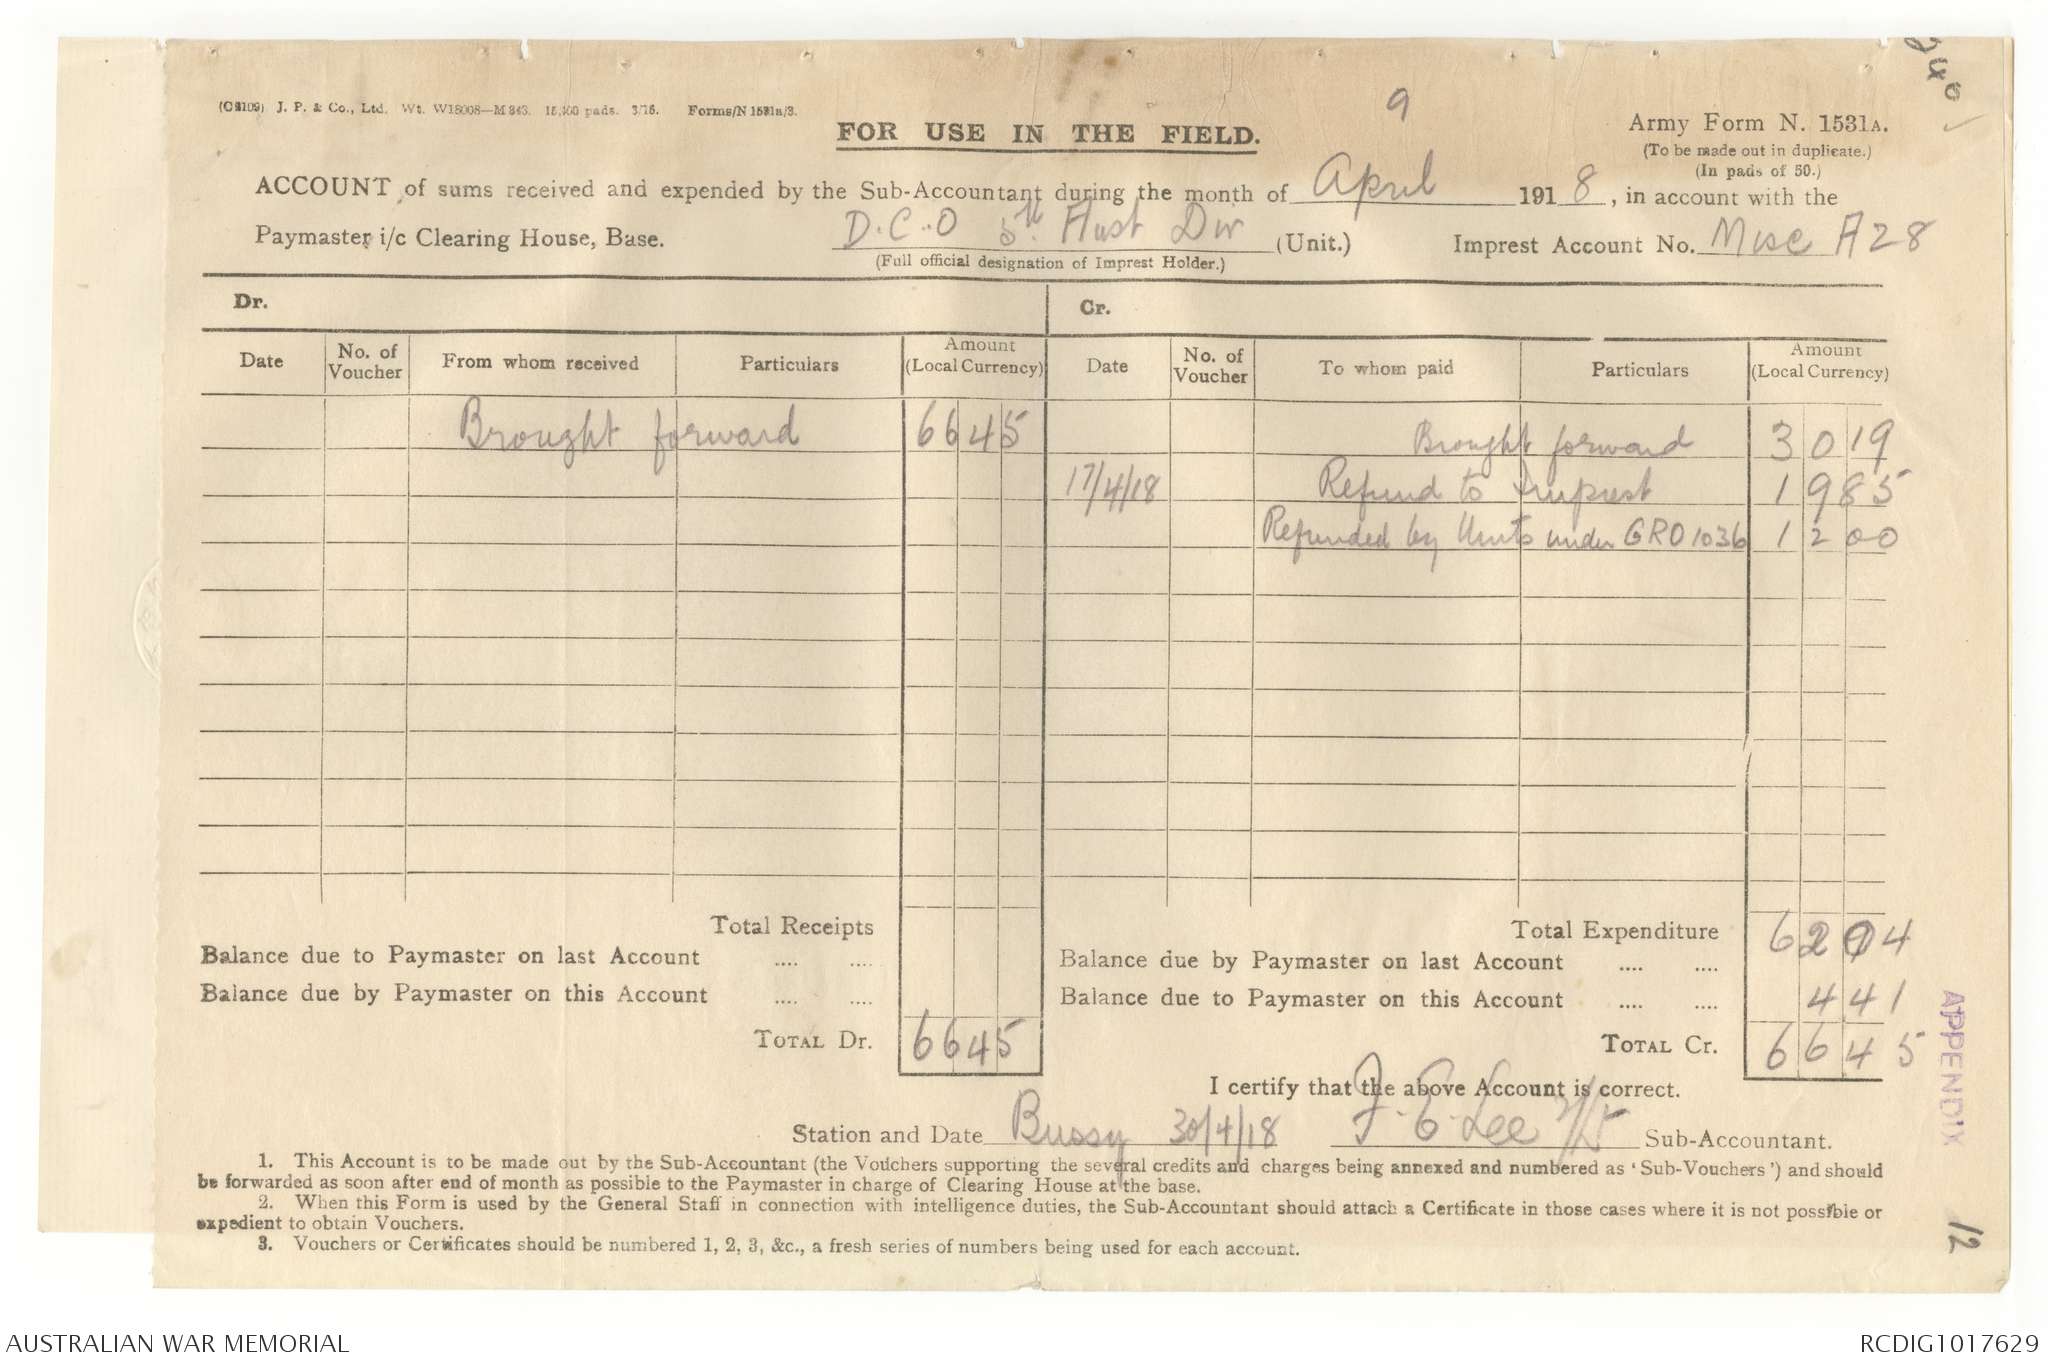 240
9
(C8109) J. P. & Co., Ltd. Wt. W18008—M 843. 15,400 pads. 3/15. Forms/N 1531a/3.
FOR USE IN THE FIELD.
Army Form N. 1531A.
(To be made out in duplicate.)
(In pads of 50.)
ACCOUNT of sums received and expended by the Sub-Accountant during the month of April 1918, in account with the
Paymaster i/c Clearing House, Base. D.C.O 5th Aust Div (Unit.) Imprest Account No. Misc A28
(Full official designation of Imprest Holder.)
Dr. Cr.
Date No. of Voucher From whom received Particulars Amount (Local Currency) Date No. of Voucher To whom paid Particulars Amount (Local Currency)
Brought forward 6645 Brought forward 3019
17/4/18 Refund to Imprest 1985
Refunded by Units under GRO 1036 1200
Total Receipts Total Expenditure 6204
Balance due to Paymaster on last Account .... .... Balance due by Paymaster on last Account .... ....
Balance due by Paymaster on this Account .... .... Balance due to Paymaster on this Account .... .... 441
TOTAL Dr. 6645 TOTAL Cr. 6645
I certify that the above Account is correct.
Station and Date Bussy 30/4/18 F. E. Lee Lt Sub-Accountant.
1. This Account is to be made out by the Sub-Accountant (the Vouchers supporting the several credits and charges being annexed and numbered as 'Sub-Vouchers') and should
be forwarded as soon after end of month as possible to the Paymaster in charge of Clearing House at the base.
2. When this Form is used by the General Staff in connection with intelligence duties, the Sub-Accountant should attach a Certificate in those cases where it is not possible or
expedient to obtain Vouchers.
3. Vouchers or Certificates should be numbered 1, 2, 3, &c., a fresh series of numbers being used for each account.
APPENDIX
12
AUSTRALIAN WAR MEMORIAL
RCDIG1017629